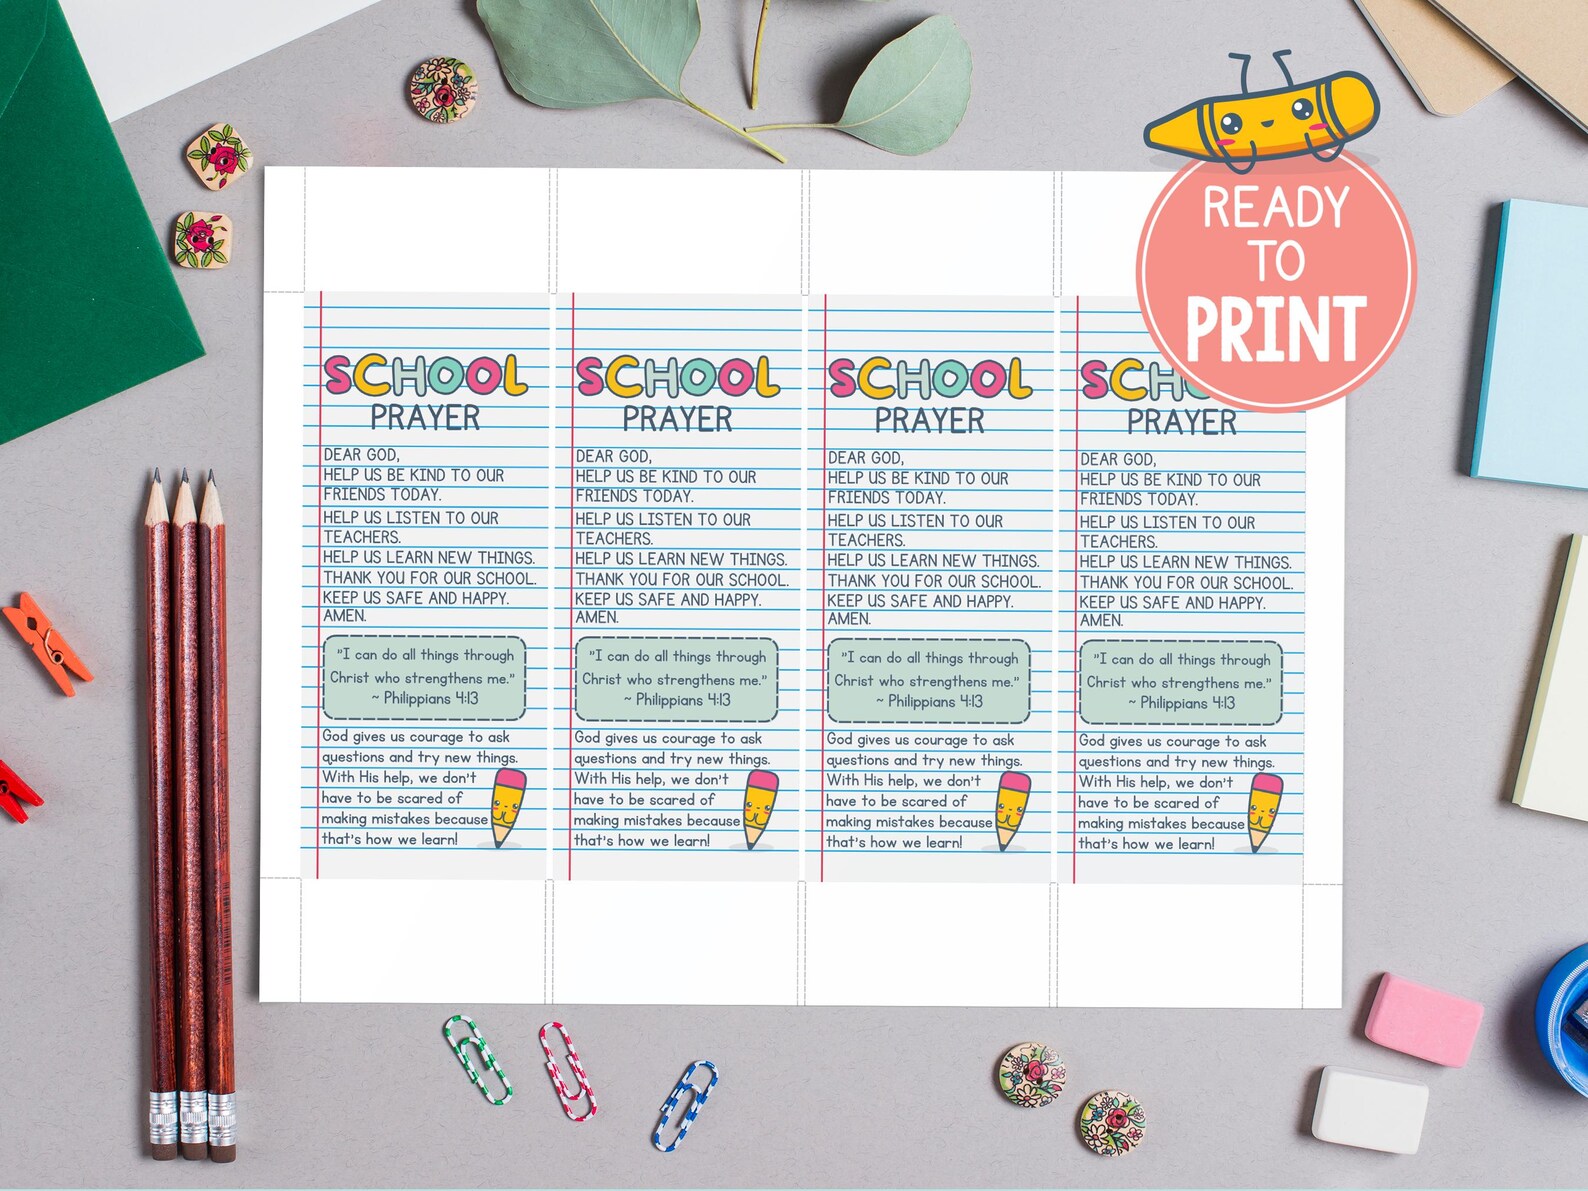 READY
TO
PRINT
SCHOOL
PRAYER
DEAR GOD,
HELP US BE KIND TO OUR
FRIENDS TODAY.
HELP US LISTEN TO OUR
TEACHERS.
HELP US LEARN NEW THINGS.
THANK YOU FOR OUR SCHOOL.
KEEP US SAFE AND HAPPY.
AMEN.
"I can do all things through
Christ who strengthens me."
~ Philippians 4:13
God gives us courage to ask
questions and try new things.
With His help, we don't
have to be scared of
making mistakes because
that's how we learn!
SCHOOL
PRAYER
DEAR GOD,
HELP US BE KIND TO OUR
FRIENDS TODAY.
HELP US LISTEN TO OUR
TEACHERS.
HELP US LEARN NEW THINGS.
THANK YOU FOR OUR SCHOOL.
KEEP US SAFE AND HAPPY.
AMEN.
"I can do all things through
Christ who strengthens me."
~ Philippians 4:13
God gives us courage to ask
questions and try new things.
With His help, we don't
have to be scared of
making mistakes because
that's how we learn!
SCHOOL
PRAYER
DEAR GOD,
HELP US BE KIND TO OUR
FRIENDS TODAY.
HELP US LISTEN TO OUR
TEACHERS.
HELP US LEARN NEW THINGS.
THANK YOU FOR OUR SCHOOL.
KEEP US SAFE AND HAPPY.
AMEN.
"I can do all things through
Christ who strengthens me."
~ Philippians 4:13
God gives us courage to ask
questions and try new things.
With His help, we don't
have to be scared of
making mistakes because
that's how we learn!
SCHO
PRAYER
DEAR GOD,
HELP US BE KIND TO OUR
FRIENDS TODAY.
HELP US LISTEN TO OUR
TEACHERS.
HELP US LEARN NEW THINGS.
THANK YOU FOR OUR SCHOOL.
KEEP US SAFE AND HAPPY.
AMEN.
"I can do all things through
Christ who strengthens me."
~ Philippians 4:13
God gives us courage to ask
questions and try new things.
With His help, we don't
have to be scared of
making mistakes because
that's how we learn!